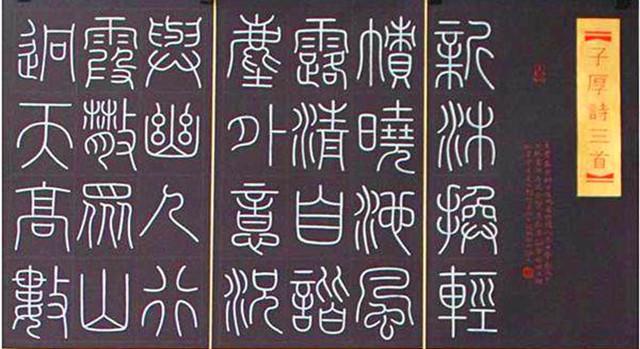 【子厚詩三首】
新沐換輕
幘曉池風
露清自諧
塵外意況
與幽人行
霞散眾山
迥天高數